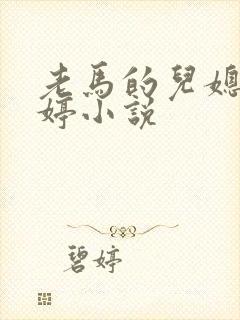 老馬的兒媳
婷小説
碧婷